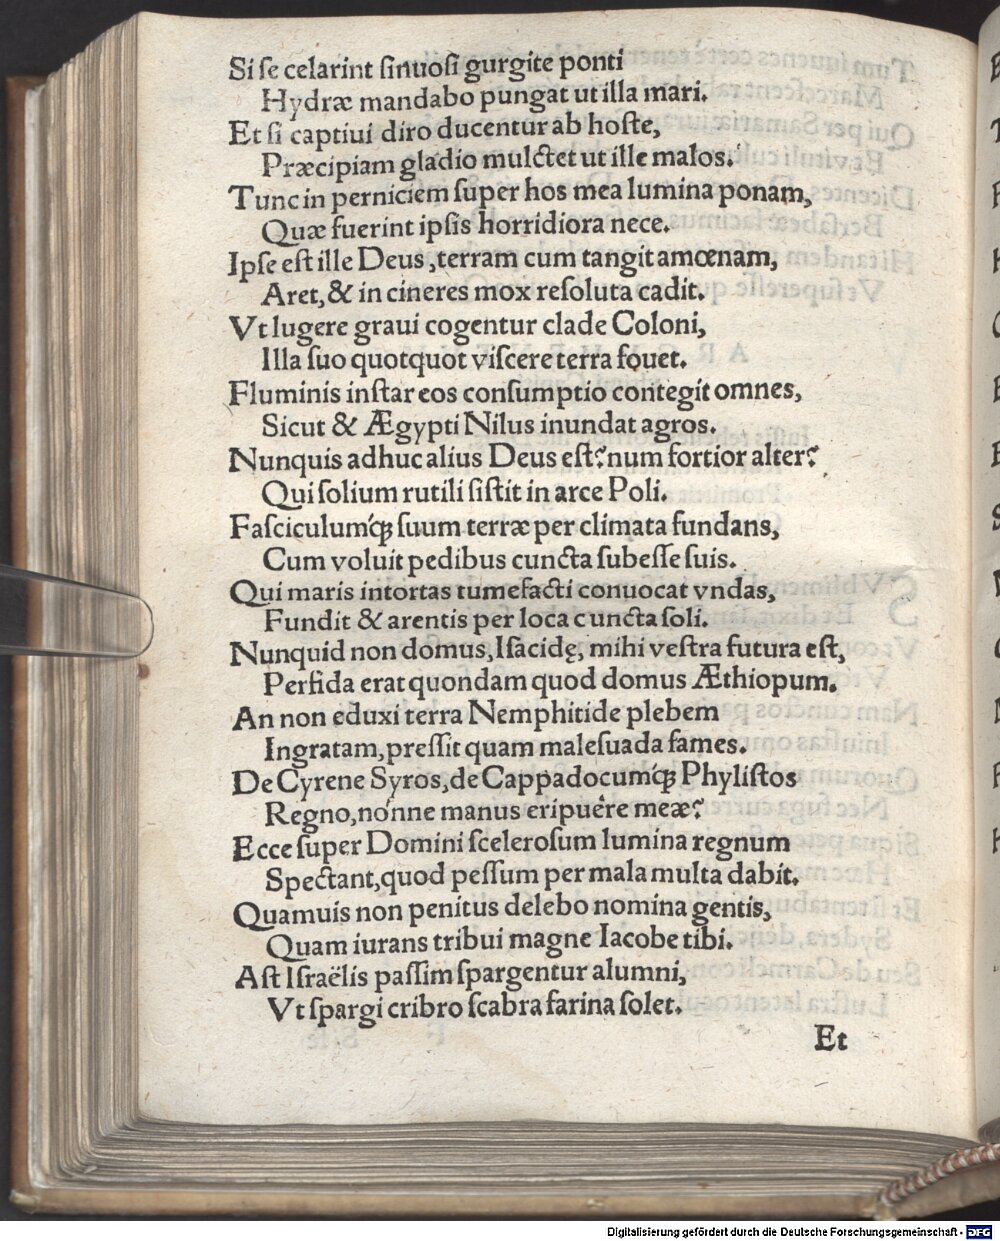 Si se celarint sinuosi gurgite ponti
Hydræ mandabo pungat ut illa mari.
Et si captiui diro ducentur ab hoste,
Præcipiam gladio mulctet ut ille malos.
Tunc in perniciem super hos mea lumina ponam,
Quæ fuerint ipsis horridiora nece.
Ipse est ille Deus, terram cum tangit amœnam,
Aret, & in cineres mox resoluta cadit.
Vt lugere graui cogentur clade Coloni,
Illa suo quotquot viscere terra fouet.
Fluminis instar eos consumptio contegit omnes,
Sicut & Ægypti Nilus inundat agros.
Nunquis adhuc alius Deus est? num fortior alter?
Qui solium rutili sistit in arce Poli.
Fasciculumq́ꝫ suum terræ per climata fundans,
Cum voluit pedibus cuncta subesse suis.
Qui maris intortas tumefacti conuocat vndas,
Fundit & arentis per loca cuncta soli.
Nunquid non domus, Isacidę, mihi vestra futura est,
Perfida erat quondam quod domus Æthiopum.
An non eduxi terra Nemphitide plebem
Ingratam, pressit quam malesuada fames.
De Cyrene Syros, de Cappadocumq́ꝫ Phylistos
Regno, nónne manus eripuêre meæ?
Ecce super Domini scelerosum lumina regnum
Spectant, quod pessum per mala multa dabit.
Quamuis non penitus delebo nomina gentis,
Quam iurans tribui magne Iacobe tibi.
Ast Israëlis passim spargentur alumni,
Vt spargi cribro scabra farina solet.
Et
Digitalisierung gefördert durch die Deutsche Forschungsgemeinschaft - DFG